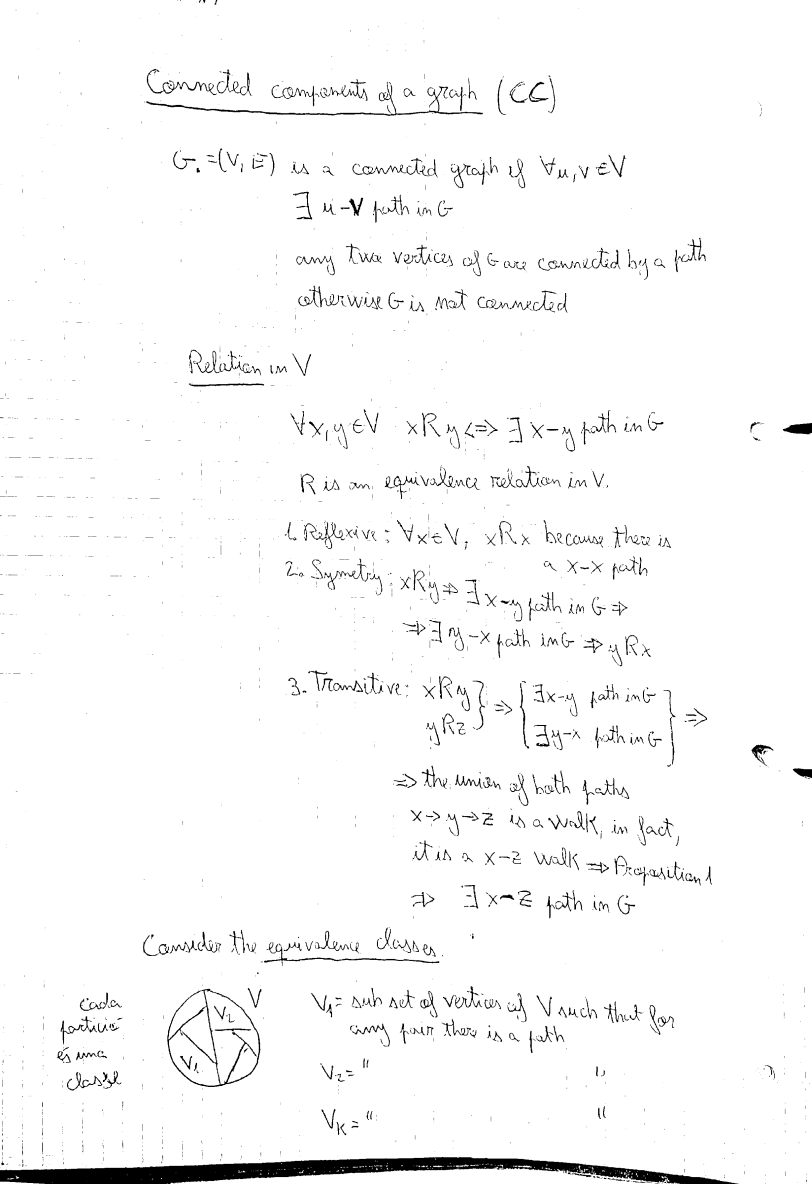 Connected components of a graph (CC)
G.=(V, E) is a connected graph if ∀u, v ∈ V
∃ u-v path in G
any two vertices of G are connected by a path
otherwise G is not connected
Relation in V
∀x, y ∈ V xRy <=> ∃ x-y path in G
R is an equivalence relation in V.
1. Reflexive: ∀x ∈ V, xRx because there is
a x-x path
2. Symetry: xRy => ∃ x-y path in G =>
=> ∃ y-x path in G => yRx
3. Transitive: xRy } => { ∃ x-y path in G } =>
yRz ∃ y-x path in G
=> the union of both paths
x→y→z is a walk, in fact,
it is a x-z walk => Proposition 1
=> ∃ x-z path in G
Consider the equivalence classes.
Cada
partició
és una
classe
V
V2
V1
V1 = sub set of vertices of V such that for
any pair there is a path
V2 = " "
VK = " "